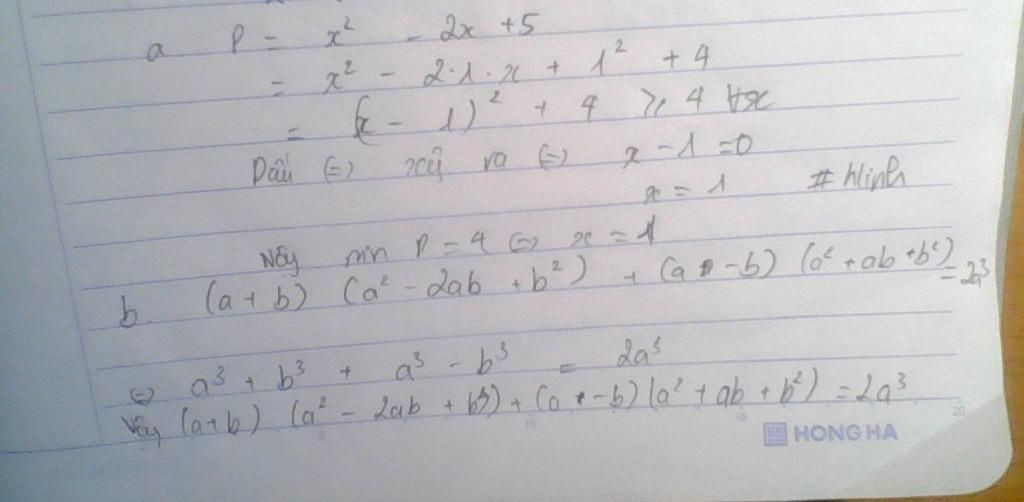 a P = x² - 2x + 5
= x² - 2.1.x + 1² + 4
= (x - 1)² + 4 ≥ 4 ∀x
Dấu (=) xảy ra (=) x - 1 = 0
x = 1 # hlinh
Vậy min P = 4 (=) x = 1
b. (a + b) (a² - 2ab + b²) + (a - b) (a² + ab + b²) = 2a³
(=) a³ + b³ + a³ - b³ = 2a³
Vậy (a+b) (a² - 2ab + b²) + (a - b) (a² + ab + b²) = 2a³
HH HONG HA
5 10 15 20